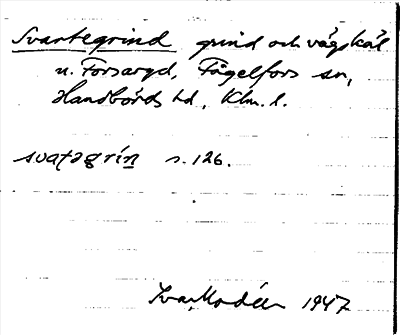 Svartegrind grind och vägskäl
n. Forsaryd, Fågelfors sn,
Handbörds hd, Klm. l.
svaṭəgrín s. 126.
Ivar Modéer 1947